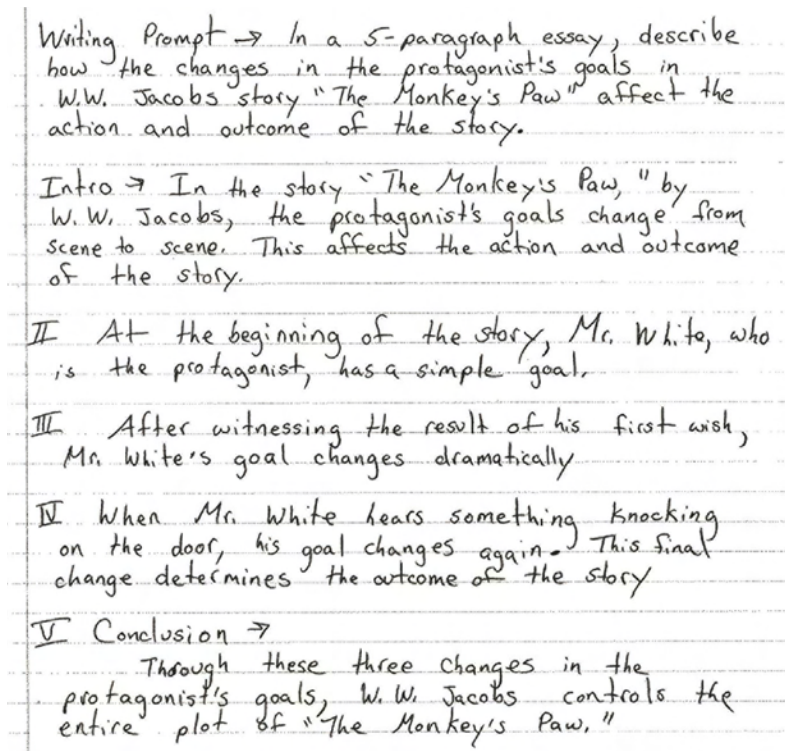 Writing Prompt → In a 5-paragraph essay, describe
how the changes in the protagonist's goals in
W.W. Jacobs story "The Monkey's Paw" affect the
action and outcome of the story.
Intro → In the story "The Monkey's Paw," by
W. W. Jacobs, the protagonist's goals change from
scene to scene. This affects the action and outcome
of the story.
II At the beginning of the story, Mr. White, who
is the protagonist, has a simple goal.
III After witnessing the result of his first wish,
Mr. White's goal changes dramatically
IV When Mr. White hears something knocking
on the door, his goal changes again. This final
change determines the outcome of the story
V Conclusion →
Through these three changes in the
protagonist's goals, W. W. Jacobs controls the
entire plot of "The Monkey's Paw."